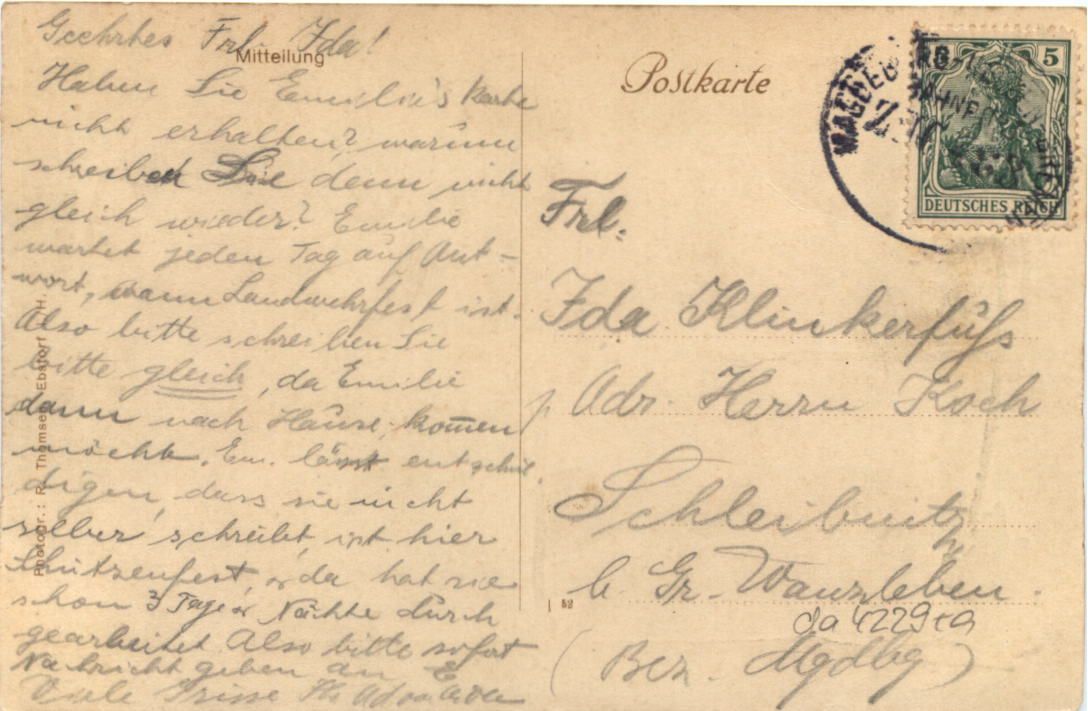 Geehrtes Frl. Ida!
Mitteilung
Haben Sie Emilie's Karte
nicht erhalten? warum
schreiben Sie denn nicht
gleich wieder? Emilie
wartet jeden Tag auf Ant-
wort, wann Landwehrfest ist.
Also bitte schreiben Sie
bitte gleich, da Emilie
dann nach Hause kommen
möchte. Em. lässt entschul
digen, dass sie nicht
selber schreibt, ist hier
Schützenfest, da hat sie
schon 3 Tage u Nächte durch
gearbeitet Also bitte sofort
Nachricht geben an E
Viele Grüsse
Photogr.: R. Thomsen, Ebstorf i. H.
Postkarte
MAGDEBURG
ZUG
5
DEUTSCHES REICH
Frl.
Ida Klinkerfuß
p. Adr. Herrn Koch
Schleibnitz
b. Gr. Wanzleben.
(Bez. Mgdbg)
52
da 4229ra